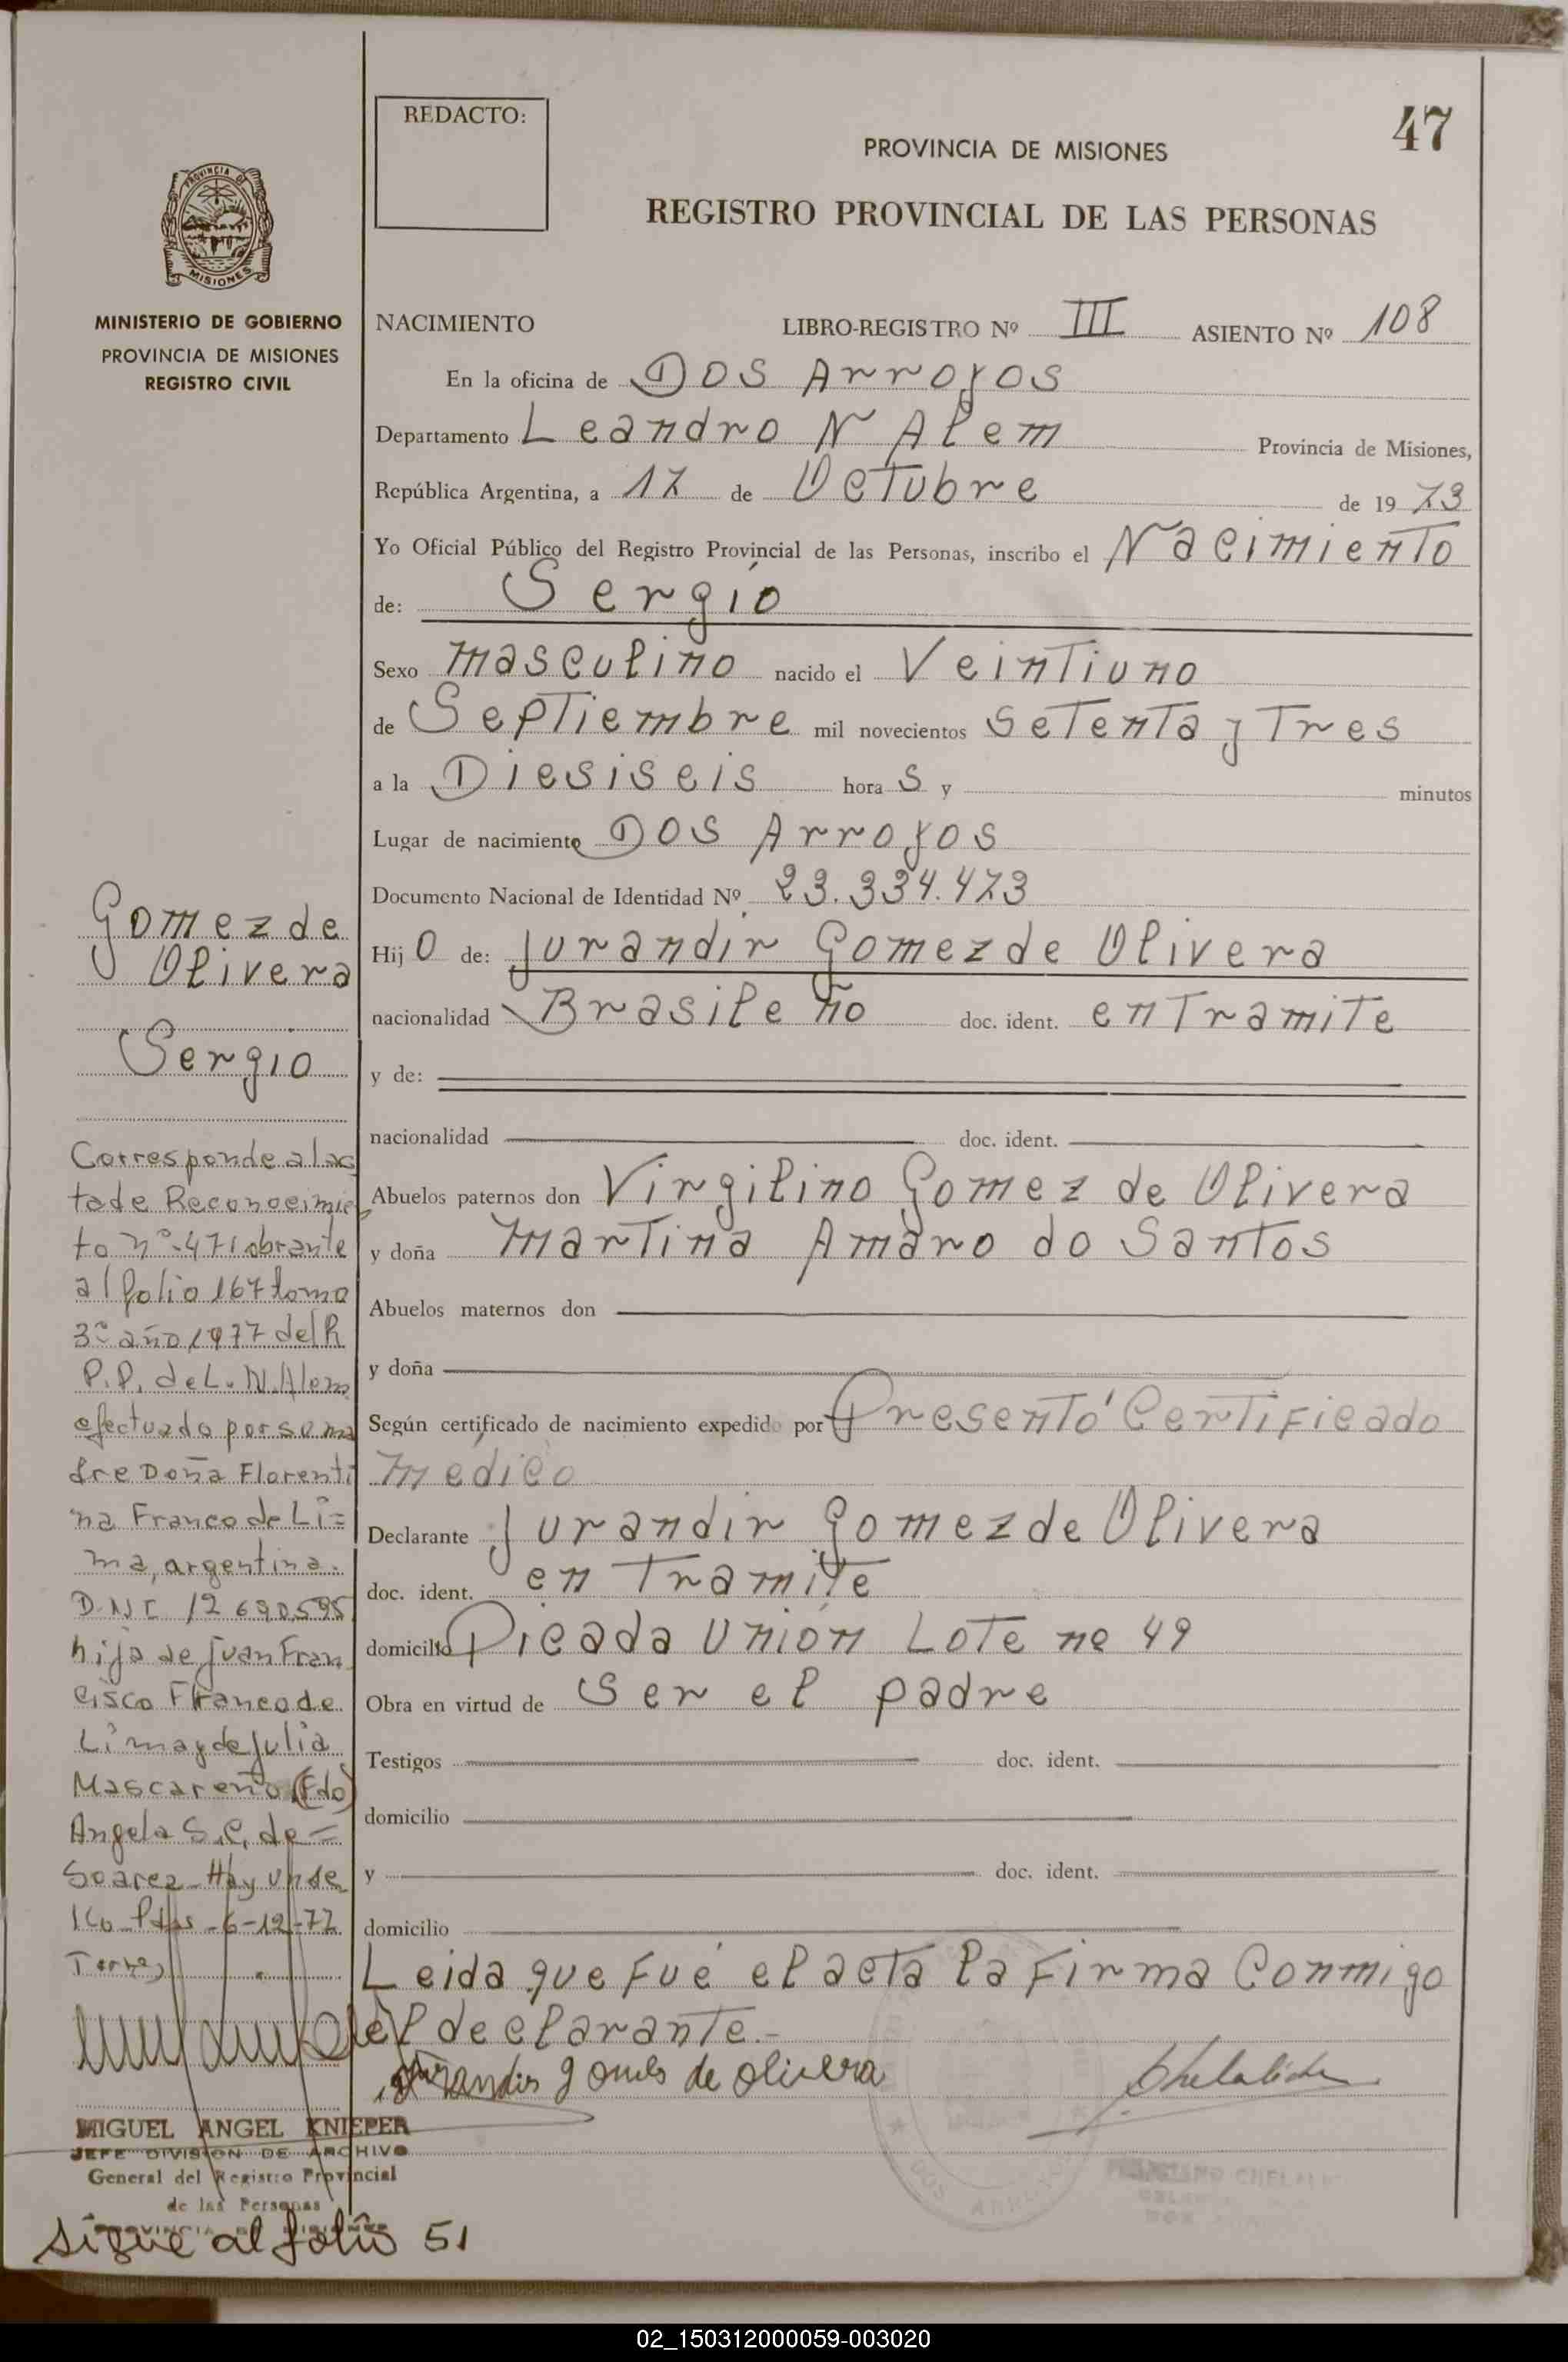 47
REDACTO:
PROVINCIA DE MISIONES
REGISTRO PROVINCIAL DE LAS PERSONAS
PROVINCIA DE
MISIONES
MINISTERIO DE GOBIERNO
PROVINCIA DE MISIONES
REGISTRO CIVIL
NACIMIENTO LIBRO-REGISTRO Nº III ASIENTO Nº 108
En la oficina de Dos Arroyos
Departamento Leandro N Alem Provincia de Misiones,
República Argentina, a 17 de Octubre de 1973
Yo Oficial Público del Registro Provincial de las Personas, inscribo el Nacimiento
de: Sergio
Sexo masculino nacido el Veintiuno
de Septiembre mil novecientos setenta y Tres
a la Diesiseis hora s y minutos
Lugar de nacimiento Dos Arroyos
Documento Nacional de Identidad Nº 23.334.473
Hij o de: Jurandir Gomez de Olivera
nacionalidad Brasileño doc. ident. en Tramite
y de:
nacionalidad doc. ident.
Abuelos paternos don Virgilino Gomez de Olivera
y doña Martina Amaro do Santos
Abuelos maternos don
y doña
Según certificado de nacimiento expedido por Presentó Certificado
medico
Declarante Jurandir Gomez de Olivera
doc. ident. en Tramite
domicilio Picada Unión Lote no 49
Obra en virtud de Ser el padre
Testigos doc. ident.
domicilio
y doc. ident.
domicilio
Leida que fué el acta la firma Conmigo
el declarante.-
Jurandir gomes de olivera
Gomez de
Olivera
Sergio
Corresponde al ac
ta de Reconocimie
to nº 471 obrante
al folio 167 tomo
3º año 1977 del R.
P.P. de L. N. Alem
efectuado por su ma
dre Doña Florenti
na Franco de Li=
ma, argentina.
D.N.I. 12 690595
hija de Juan Fran
cisco Franco de
Lima y de Julia
Mascareño (Fdo)
Angela S.C. de =
Soarez Hay un se
llo Pdas 6-12-77
Torres
MIGUEL ANGEL KNIEPER
JEFE DIVISION DE ARCHIVO
General del Registro Provincial
de las Personas
PROVINCIA DE MISIONES
sigue al folio 51
DOS ARROYOS
02_150312000059-003020